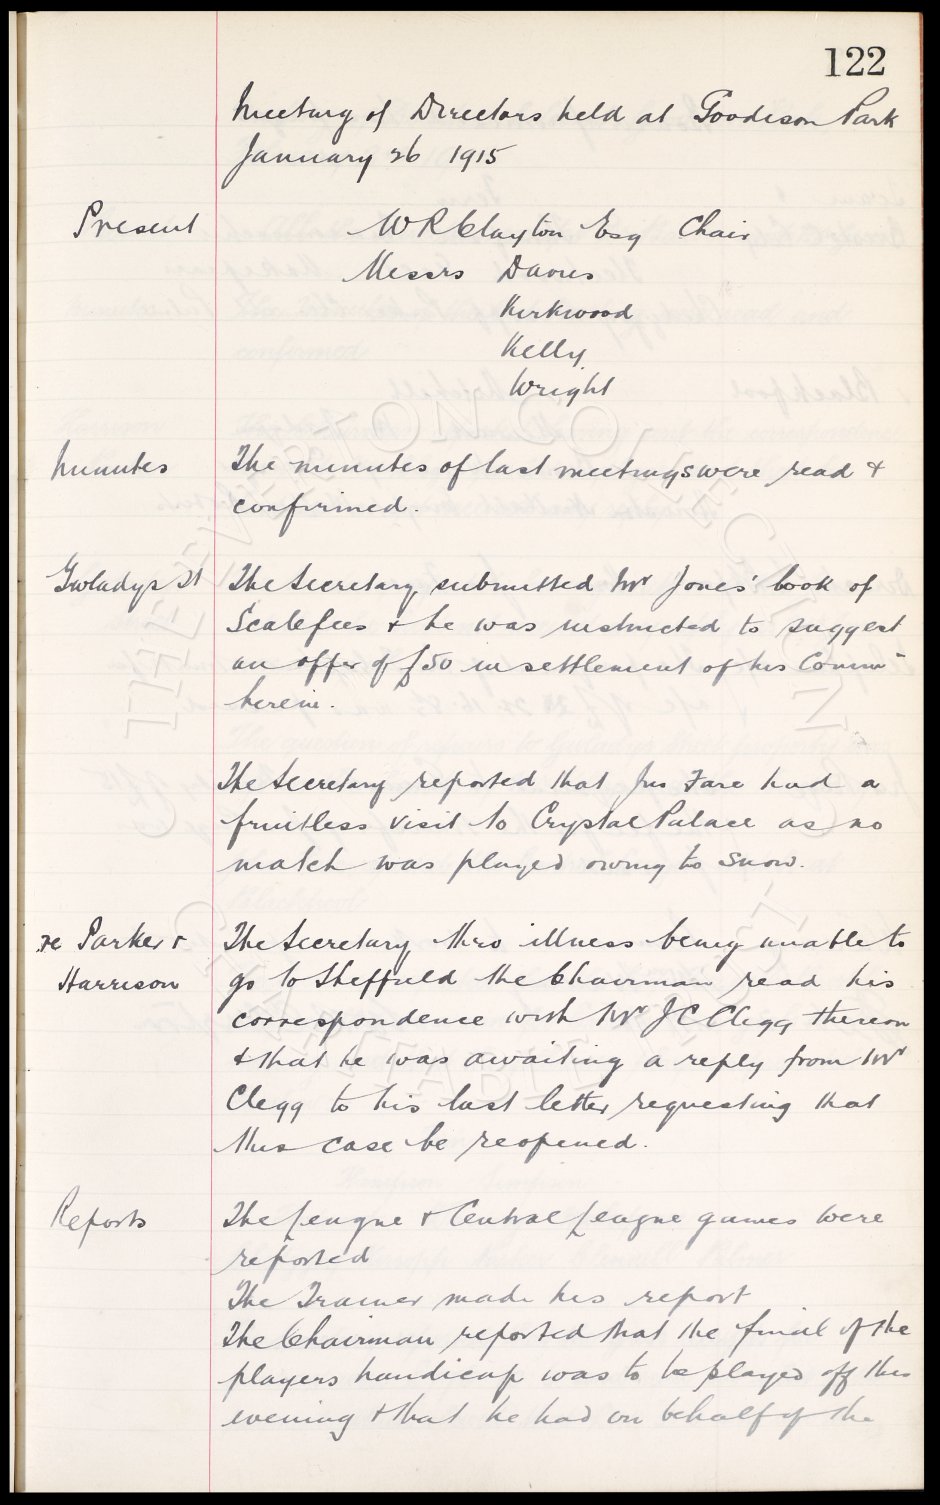 122
Meeting of Directors held at Goodison Park
January 26 1915
Present W R Clayton Esq Chair
Messrs Davies
Kirkwood
Kelly
Wright
Minutes The minutes of last meetings were read &
confirmed.
Gwladys St The Secretary submitted Mr Jones' book of
Scalefees & he was instructed to suggest
an offer of £50 in settlement of his Commn
herein.
The Secretary reported that Jns Fare had a
fruitless visit to Crystal Palace as no
match was played owing to snow.
re Parker & The Secretary thro illness being unable to
Harrison go to Sheffield the Chairman read his
correspondence with Mr J C Clegg thereon
& that he was awaiting a reply from Mr
Clegg to his last letter requesting that
this case be reopened.
Reports The League & Central League games were
reported
The Trainer made his report
The Chairman reported that the final of the
players handicap was to be played off this
evening & that he had on behalf of the